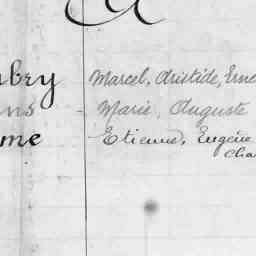 Marcel, Aristide, Erne
Marie, Auguste
me Etienne, Eugène
Cha